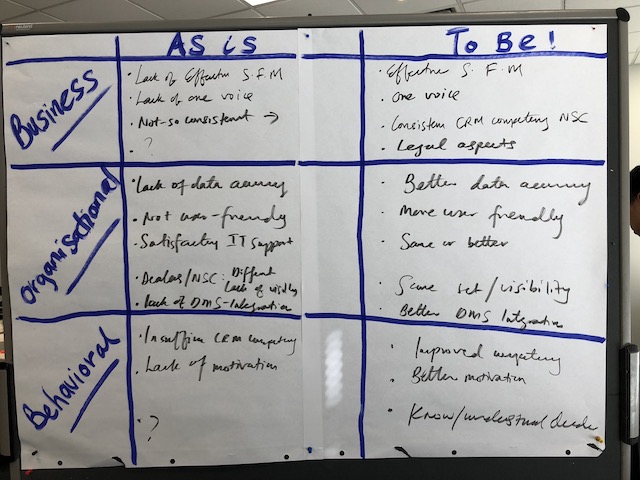 AS is
To Be!
Business
· Lack of Effective S.F.M
· Lack of one voice
· Not-so consistent →
· ?
· Effective S. F. M
· One voice
· Consistent CRM competency NSC
· Legal aspects
Organisational
· Lack of data accuracy
· Not user-friendly
· Satisfactory IT support
· Dealers/NSC: Different
Lack of visibility
· Lack of DMS-Integration
· Better data accuracy
· More user friendly
· Same or better
· Same set/visibility
· Better DMS Integration
Behavioral
· Insufficient CRM competency
· Lack of motivation
· ?
· Improved competency
· Better motivation
· Know/understand